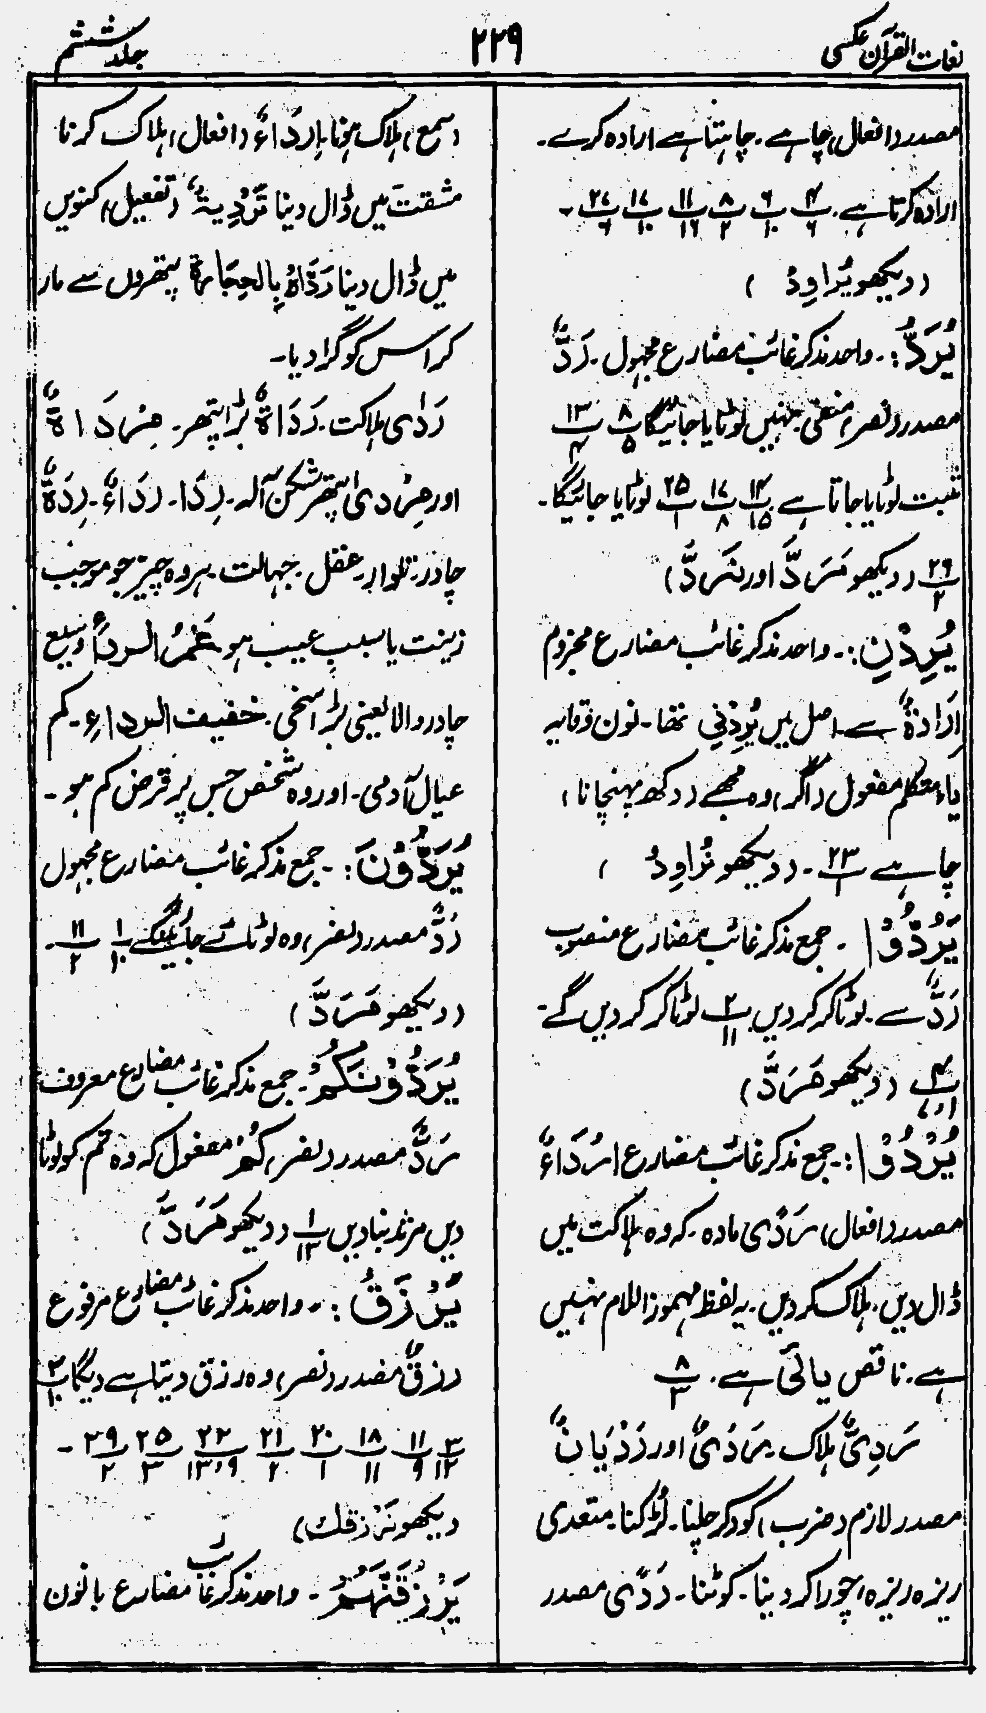 لغات القرآن عکسی
۲۲۹
جلد ششم
مصدر (افعال) چاہے۔ چاہتا ہے ارادہ کرے۔
ارادہ کرتا ہے۔ ۴/۶ ۶/۱۰ ۸/۲ ۱۱/۱۶ ۱۷/۱۰ ۲۷/۶ ۔
(دیکھو یُرَاوِدُ)
یُرَدُّ:۔ واحد مذکر غائب مضارع مجہول۔ رَدٌّ
مصدر (نصر) منفی نہیں لوٹایا جائیگا ۸/۵ ۱۳/۴
مثبت لوٹایا جاتا ہے ۱۴/۱۵ ۱۷/۸ ۲۵/۱ لوٹایا جائیگا۔
۲۹/۲ (دیکھو مَرَدَّ اور نَرُدَّ)
یُرِدْنِ:۔ واحد مذکر غائب مضارع مجزوم
اِرَادَةٌ سے اصل میں یُرِدْنِی تھا۔ نون وقایہ
یاء متکلم مفعول (اگر) وہ مجھے (دکھ پہنچانا)
چاہے ۲۳/۱۔ (دیکھو نُرَاوِدُ)
یَرُدُّوْا۔ جمع مذکر غائب مضارع منصوب
رَدٌّ سے۔ لوٹا کر کر دیں ۲/۱۱ لوٹا کر کر دیں گے۔
۴/۱،۲ (دیکھو مَرَدَّ)
یُرْدُوْا:۔ جمع مذکر غائب مضارع اِرْدَاءٌ
مصدر (افعال) رَدًی مادہ۔ کہ وہ ہلاکت میں
ڈال دیں۔ ہلاک کر دیں۔ یہ لفظ مہموز اللام نہیں
ہے۔ ناقص یائی ہے۔ ۸/۳
رَدِیٌّ ہلاک۔ رَدْیٌ اور رَدْیَانٌ
مصدر لازم (ضرب) کود کر چلنا۔ لڑکنا۔ متعدی
ریزہ ریزہ، چورا کر دینا۔ کوٹنا۔ رَدًی مصدر
(سمع) ہلاک ہونا۔ اِرْدَاءٌ (افعال) ہلاک کرنا
مشقت میں ڈال دینا تَرْدِیَةٌ (تفعیل) کنویں
میں ڈال دینا رَدَاهُ بِالحِجَارَةِ پتھروں سے مار
کر اس کو گرا دیا۔
رَدًی ہلاکت۔ رَدَاةٌ بڑا پتھر۔ مِرْدَاةٌ
اور مِرْدًی پتھر شکن آلہ۔ رِدًا۔ رِدَاءٌ۔ رِدَةٌ
چادر۔ تلوار۔ عقل۔ جہالت۔ ہر وہ چیز جو موجب
زینت یا سبب عیب ہو۔ غَمْرُ الرِّدَاءِ وسیع
چادر والا یعنی بڑا سخی۔ خفیف الرداءِ۔ کم
عیال آدمی۔ اور وہ شخص جس پر قرض کم ہو۔
یُرَدُّوْنَ:۔ جمع مذکر غائب مضارع مجہول
رَدٌّ مصدر (نصر) وہ لوٹائے جائینگے ۱/۱۰ ۱۱/۲۔
(دیکھو مَرَدَّ)
یَرُدُّوْنَکُمْ۔ جمع مذکر غائب مضارع معروف
رَدٌّ مصدر (نصر) کُمْ مفعول کہ وہ تم کو لوٹا
دیں مرتد بنا دیں ۱/۱۳ (دیکھو مَرَدَّ)
یَرْزُقُ:۔ واحد مذکر غائب مضارع مرفوع
رزقٌ مصدر (نصر) وہ رزق دیتا ہے دیگا ۲/۱۰
۳/۱۲ ۱۱/۹ ۱۸/۱۱ ۲۰/۱ ۲۱/۲ ۲۲/۱۳،۹ ۲۵/۳ ۲۹/۲ ۔
دیکھو نَرْزُقُكَ)
یَرْزُقَنَّهُمْ۔ واحد مذکر غائب مضارع بانون